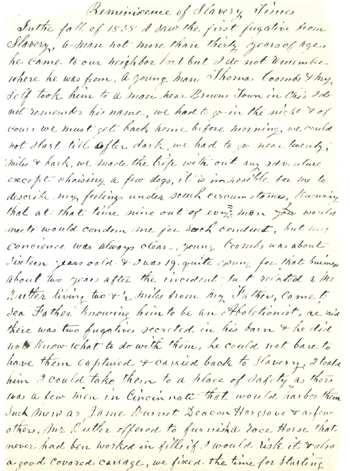 Reminiscence of Slavery Times
In the fall of 1838 I saw the first fugative from
Slavery, a man not more than thirty years of age,
he came to our neighbor but I do not remember
where he was from, a young man Thomas Coombs & my
self took him to a man near Brown Town in Ohio I do
not remember his name, we had to go in the night & of
cours we must get back home before morning, we could
not start till after dark, we had to go near twenty
miles & back, we made the trip with out any adventure
except chaising a few dogs, it is impossible for me to
discribe my feelings under such circumstances, knowing
that at that time nine out of every man you would
meet would condem me for such conduct, but my
concience was always clear, young Coombs was about
sixteen years oald & I was 19. quite young for that business
about two years after the incident but related a Mr
Butler living two & ½ miles from my Father, came to
see Father knowing him to be an Abolitionist, he said
there was two fugatives secreted in his barn & he did
not know what to do with them, he could not bare to
have them captured & carried back to Slavery, I toald
him I could take them to a place of safety, as there
was a few men in Cincinnate that would harber them
Such men as Jame Burnot Deacon Hargrove & a few
others, Mr Butler offered to furnish a race Horse that
never had ben worked in fills if I would risk it & also
a good covared carriage, we fixed the time for starting